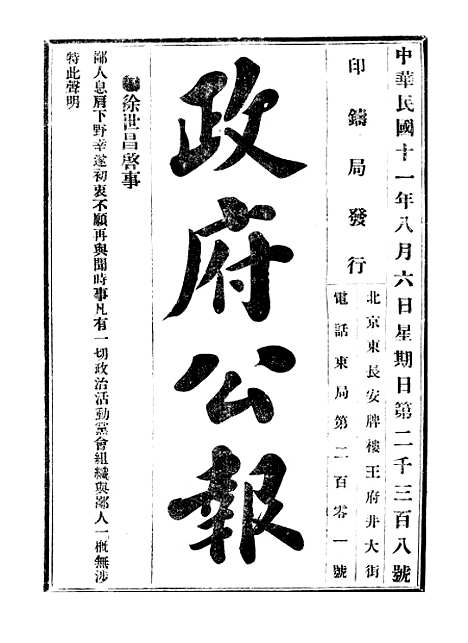 中華民國十一年八月六日星期日第二千三百八號
印鑄局發行
北京東長安牌樓王府井大街
電話東局第二百零一號
政府公報
徐世昌啓事
鄙人息肩下野幸遂初衷不願再與聞時事凡有一切政治活動黨會組織與鄙人一槪無涉
特此聲明